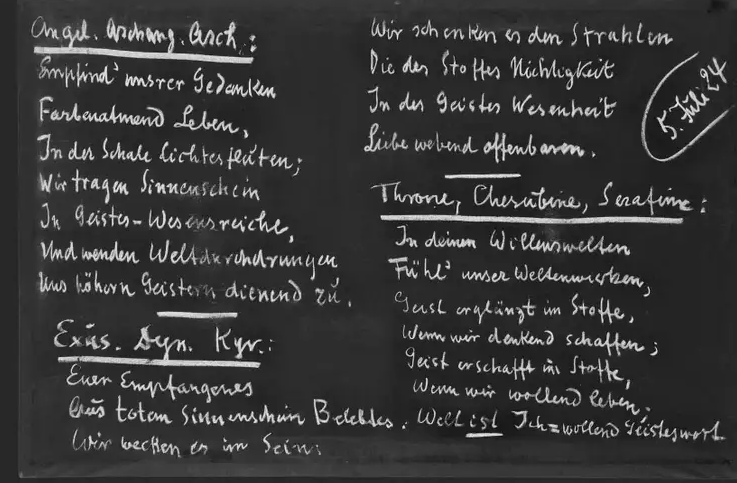 Angel. Archang. Arch.:
Empfind' unsrer Gedanken
Farbenatmend Leben,
In der Schale Lichtesfluten;
Wir tragen Sinnenschein
In Geistes-Wesensreiche,
Und wenden Weltdurchdrungen
Uns höhern Geistern dienend zu.
Exus. Dyn. Kyr.:
Euer Empfangenes
Aus totem Sinnenschein Belebtes.
Wir wecken es im Sein;
Wir schenken es den Strahlen
Die des Stoffes Nichtigkeit
In des Geistes Wesenheit
Liebe webend offenbaren.
5. Juli 24
Throne, Cherubine, Serafine:
In deinen Willenswelten
Fühl' unser Weltenwirken;
Geist erglänzt im Stoffe,
Wenn wir denkend schaffen;
Geist erschafft im Stoffe,
Wenn wir wollend leben;
Welt ist Ich=wollend Geisteswort